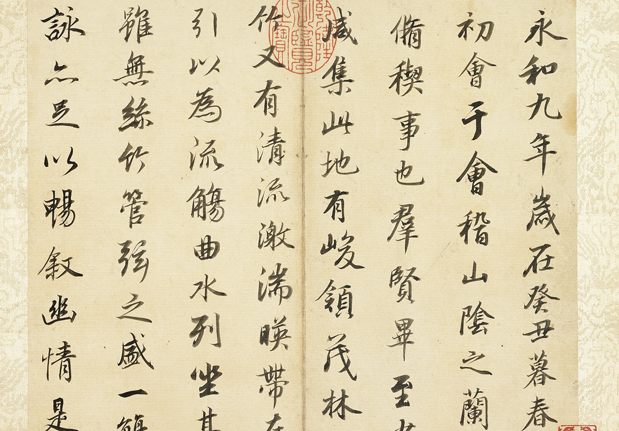 永和九年歲在癸丑暮春
初會于會稽山陰之蘭
脩稧事也羣賢畢至
咸集此地有峻領茂林
竹又有清流激湍暎帶
引以為流觴曲水列坐其
雖無絲竹管弦之盛一觴
詠亦足以暢敘幽情是